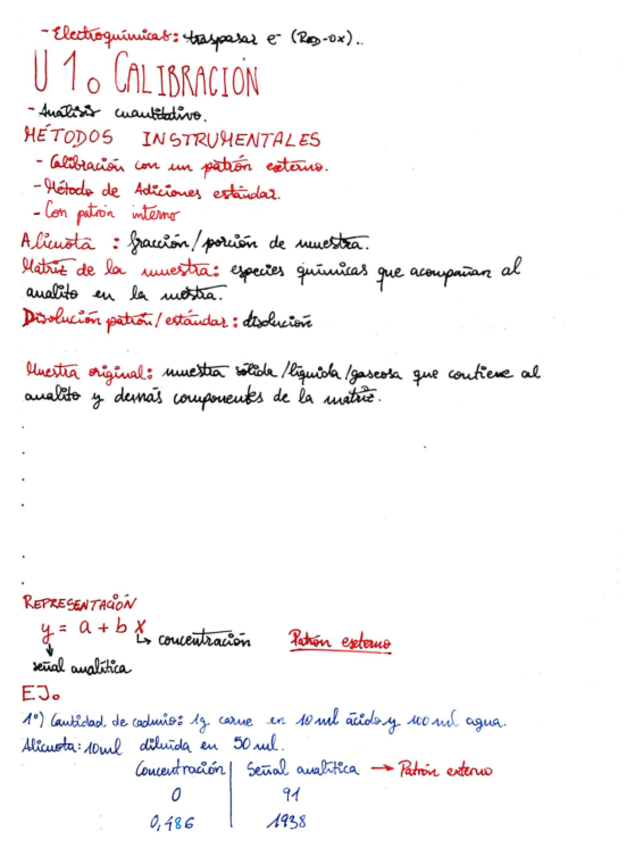 - Electroquímicas: traspasar e⁻ (RED-OX)..
U 1. CALIBRACIÓN
- Análisis cuantitativo.
MÉTODOS INSTRUMENTALES
- Calibración con un patrón externo.
- Método de Adiciones estándar.
- Con patrón interno
Alicuota : fracción/porción de muestra.
Matriz de la muestra: especies químicas que acompañan al
analito en la mestra.
Disolución patrón/estándar: disolución
Muestra original: muestra sólida/líquida/gaseosa que contiene al
analito y demás componentes de la matriz.
REPRESENTACIÓN
y = a + b x
concentración Patrón externo
señal analítica
EJ.
1º) Cantidad de cadmio: 1g. carne en 10 ml ácido y 100 ml agua.
Alicuota: 10ml diluída en 50 ml.
Concentración Señal analítica → Patrón externo
0 91
0,486 1938